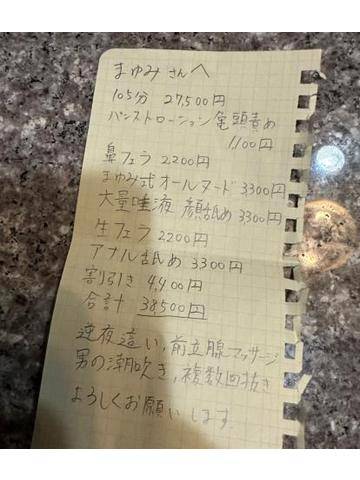 まゆみさんへ
105分 27,500円
パンストローション亀頭責め
1100円
鼻フェラ 2200円
まゆみ式オールヌード 3300円
大量唾液 顔舐め 3300円
生フェラ 2200円
アナル舐め 3300円
割引き 4,400円
合計 38,500円
逆夜這い,前立腺マッサージ
男の潮吹き,複数回抜き
よろしくお願いします